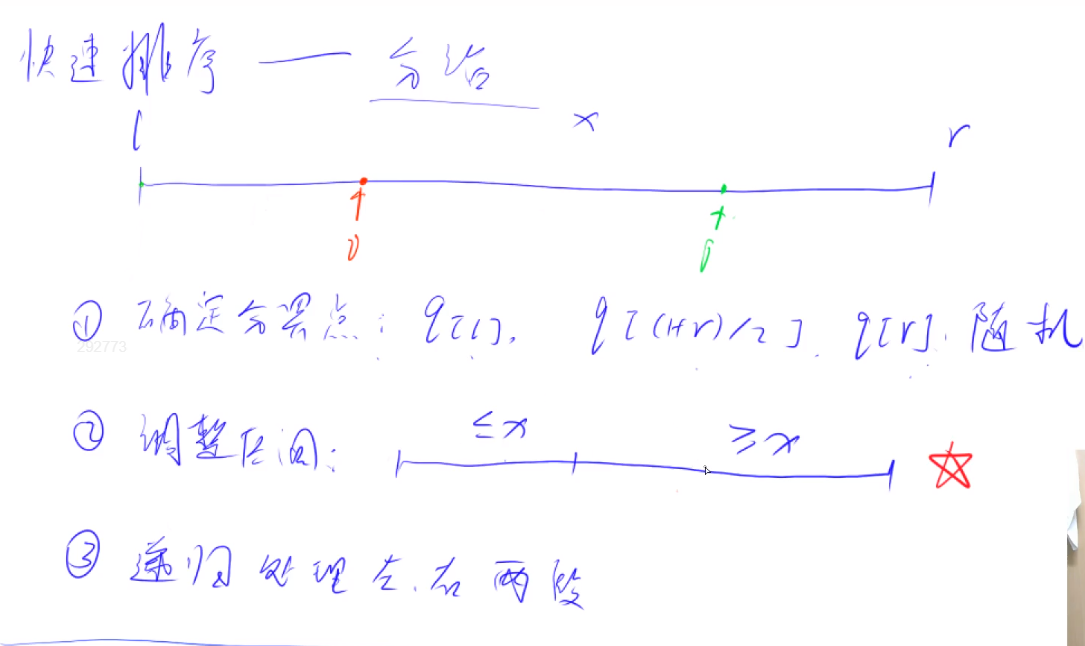 快速排序 —— 分治
x
l r
① 确定分界点: q[l], q[(l+r)/2], q[r], 随机
292773
≤x ≥x
② 调整区间:
③ 递归处理左、右两段